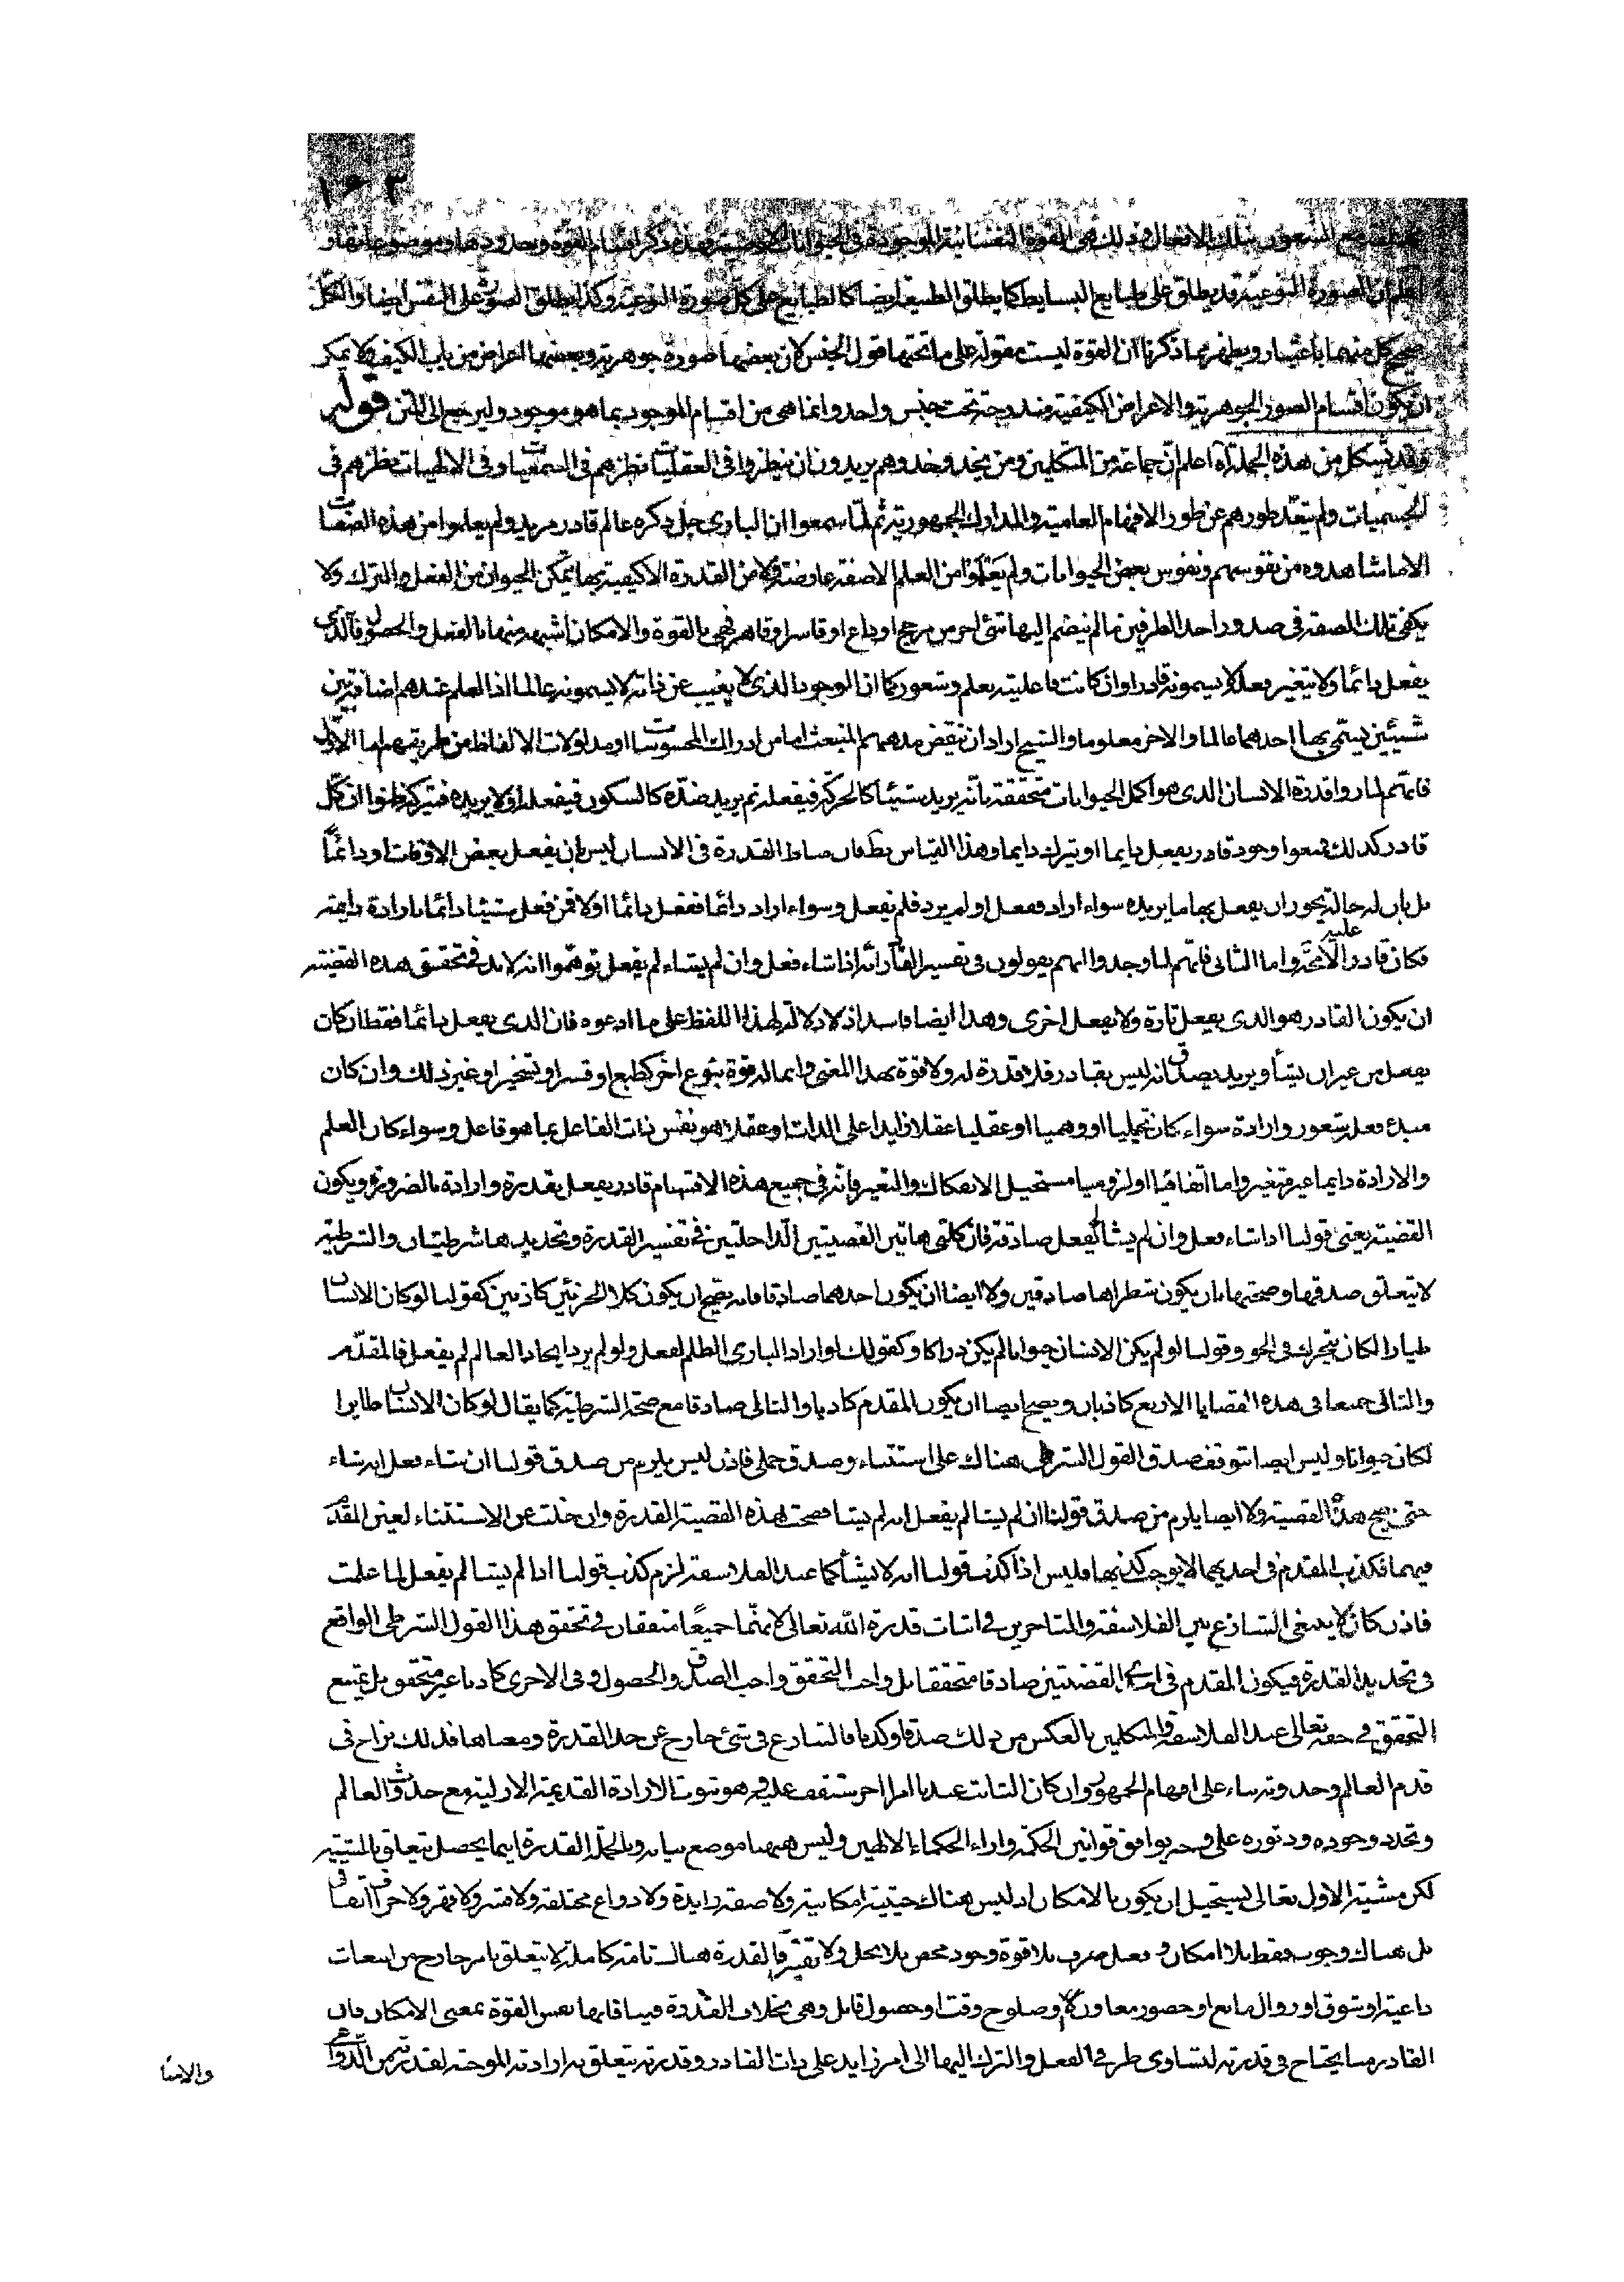 ١٦٣
مختلفة مع الشعور بتلك الافعال وذلك هي القوة النفسانية الموجودة في الحيوانات الارضية فهذه ذكر اقسام القوة وحدودها وموضوعاتها و
اعلم ان الصورة النوعية قد يطلق على طبايع البسايط كما يطلق الطبيعة ايضا كالطبايع على كل صورة النوعية وكذا يطلق الصورة على النفس ايضا والكل
صحيح كل منهما باعتبار ويظهر مما ذكرنا ان القوة ليست مقولة على ما تحتها قول الجنس لان بعضها صورة جوهرية وبعضها اعراض من باب الكيف ولا يمكن
ان يكون اقسام الصور الجوهرية والاعراض الكيفية مندرجة تحت جنس واحد وانما هي من اقسام الموجود بما هو موجود ولنرجع الى المتن قوله
وقد يشكل من هذه الجملة آه اعلم ان جماعة من المتكلمين ومن يحذو حذوهم يريدون ان ينظروا في العقليات نظرهم في السمعيات وفي الالهيات نظرهم في
الجسميات ولم يتعد طورهم عن طور الافهام العامية والمدارك الجمهورية ثم لما سمعوا ان الباري جل ذكره عالم قادر مريد ولم يعلموا من هذه الصفات
الا ما شاهدوه من نفوسهم ونفوس بعض الحيوانات ولم يعقلوا من العلم الا صفة عارضة ولا من القدرة الا كيفية بها يتمكن الحيوان من الفعل والترك ولا
يكفي تلك الصفة في صدور احد الطرفين ما لم ينضم اليها شئ اخر من مرجح او داع او قاسر او قاهر فهي بالقوة والامكان اشبه منها بالفعل والحصول فالذي
يفعل دائما ولا يتغير فعله لا يسمونه قادرا وان كانت فاعليته بعلم وشعور كما ان الوجود الذي لا يغيب عن ذاته لا يسمونه عالما اذ العلم عندهم اضافة بين
شيئين يسمى بها احدهما عالما والاخر معلوما والشيخ اراد ان ينقض مذهبهم المنبعث اما من ادراك المحسوسات او مدلولات الالفاظ من طريقهم اما الاول
فانهم لما راوا قدرة الانسان الذي هو اكمل الحيوانات متحققة بانه يريد شيئا كالحركة فيفعله ثم يريد ضده كالسكون فيفعله او لا يريده فيتركه ظنوا ان كل
قادر كذلك فمنعوا وجود قادر يفعل دايما او يترك دايما وهذا القياس بط فان مناط القدرة في الانسان ليس بان يفعل بعض الاوقات او دائما
بل بان له حالة يجوز ان يفعل بها ما يريده سواء اراد ففعل او لم يرد فلم يفعل وسواء اراد دائما ففعل دائما او لا فمن فعل شيئا دائما بارادة دايمة
فكان قادرا لا محة واما الثاني فانهم لما وجدوا انهم يقولون في تفسير القادر انه اذا شاء فعل وان لم يشاء لم يفعل توهموا انه لا بد في تحقيق هذه القضية
ان يكون القادر هو الذي يفعل تارة ولا يفعل اخرى وهذا ايضا فاسد اذ لا دلالة لهذا اللفظ على ما ادعوه فان الذي يفعل دائما فقط ان كان
يفعل من غير ان يشأ ويريد يصدق انه ليس بقادر فلا قدرة له ولا قوة بهذا المعنى وانما له قوة بنوع اخر كطبع او قسر او تسخير او غير ذلك وان كان
مبدء فعله شعور وارادة سواء كان تخيليا او وهميا او عقليا عقلا زايدا على الذات او عقلا هو نفس ذات الفاعل بما هو فاعل وسواء كان العلم
والارادة دايما غير متغير واما اتفاقيا او لزوميا مستحيل الانفكاك والتغير فانه في جميع هذه الاقسام قادر يفعل بقدرة وارادة بالضرورة ويكون
القضية يعني قولنا اذا شاء فعل وان لم يشأ لم يفعل صادقة فان كلتي هاتين القضيتين الداخلتين في تفسير القدرة وتحديدها شرطيتان والشرطية
لا يتعلق صدقها وصحتها بان يكون شطراها صادقين ولا ايضا ان يكون احدهما صادقا فانه يصح ان يكون كلا الجزئين كاذبين كقولنا لو كان الانسان
طيارا لكان يتحرك في الجو وقولنا لو لم يكن الانسان حيوانا لم يكن دراكا وكقولك لو اراد الباري الظلم لفعل ولو لم يرد ايجاد العالم لم يفعل فالمقدم
والتالي جميعا في هذه القضايا الاربع كاذبان ويصح ايضا ان يكون المقدم كاذبا والتالي صادقا مع صحة الشرطية كما يقال لو كان الانسان طايرا
لكان حيوانا وليس ايضا يتوقف صدق القول الشرطي هناك على استثناء وصدق حملي فاذن ليس يلزم من صدق قولنا ان شاء فعل انه شاء
حتى يصح هذه القضية ولا ايضا يلزم من صدق قولنا ان لم يشا لم يفعل انه لم يشا فصحت لهذه القضية القدرة وان خلت عن الاستثناء لعين المقدم
فيهما فكذب المقدم في احديهما لا يوجب كذبها فليس اذا كذب قولنا انه لا يشأ كما عند الفلاسفة لزم كذب قولنا اذا لم يشا لم يفعل لما علمت
فاذن كان لا ينبغي التنازع بين الفلاسفة والمتاخرين في اثبات قدرة الله تعالى لانهما جميعا متفقان في تحقق هذا القول الشرطي الواقع
في تحديد القدرة فيكون المقدم في احدى القضيتين صادقا متحققا بل واجب التحقق واجب الصدق والحصول وفي الاخرى كاذبا غير متحقق بل يمتنع
التحقق في حقه تعالى عند الفلاسفة والمتكلمين بالعكس من ذلك صدقا وكذبا فالتنازع في شئ خارج عن حد القدرة ومعناها فذلك نزاع في
قدم العالم وحدوثه بناء على افهام الجمهور وان كان الثابت عندنا امرا اخر سنقف عليه هو ثبوت الارادة القديمة الازلية مع حدوث العالم
وتجدد وجوده ودثوره على وجه يوافق قوانين الحكمة واراء الحكماء الالهيين وليس هيهنا موضع بيانه وبالجملة القدرة انما يحصل بتعلق بالمشية
لكن مشية الاول تعالى يستحيل ان يكون بالامكان اذ ليس هناك حيثية امكانية ولا صفة زايدة ولا دواع مختلفة ولا قسر ولا قهر ولا جزاف اتفاق
بل هناك وجوب فقط بلا امكان وفعل صرف بلا قوة ووجود محض بلا بخل ولا تقتير فالقدرة هناك تامة كاملة لا يتعلق بامر خارج من انبعاث
داعية او شوق او زوال مانع او حضور معاون وصلوح وقت او حصول قابل وهي بخلاف القدرة فينا فانها نفس القوة بمعنى الامكان فان
القادر منا يحتاج في قدرته لتساوى طرفي الفعل والترك اليها الى امر زايد على ذات القادر وقدرته يتعلق به ارادته الموجبة لقدرته من الدواعي
والامنا